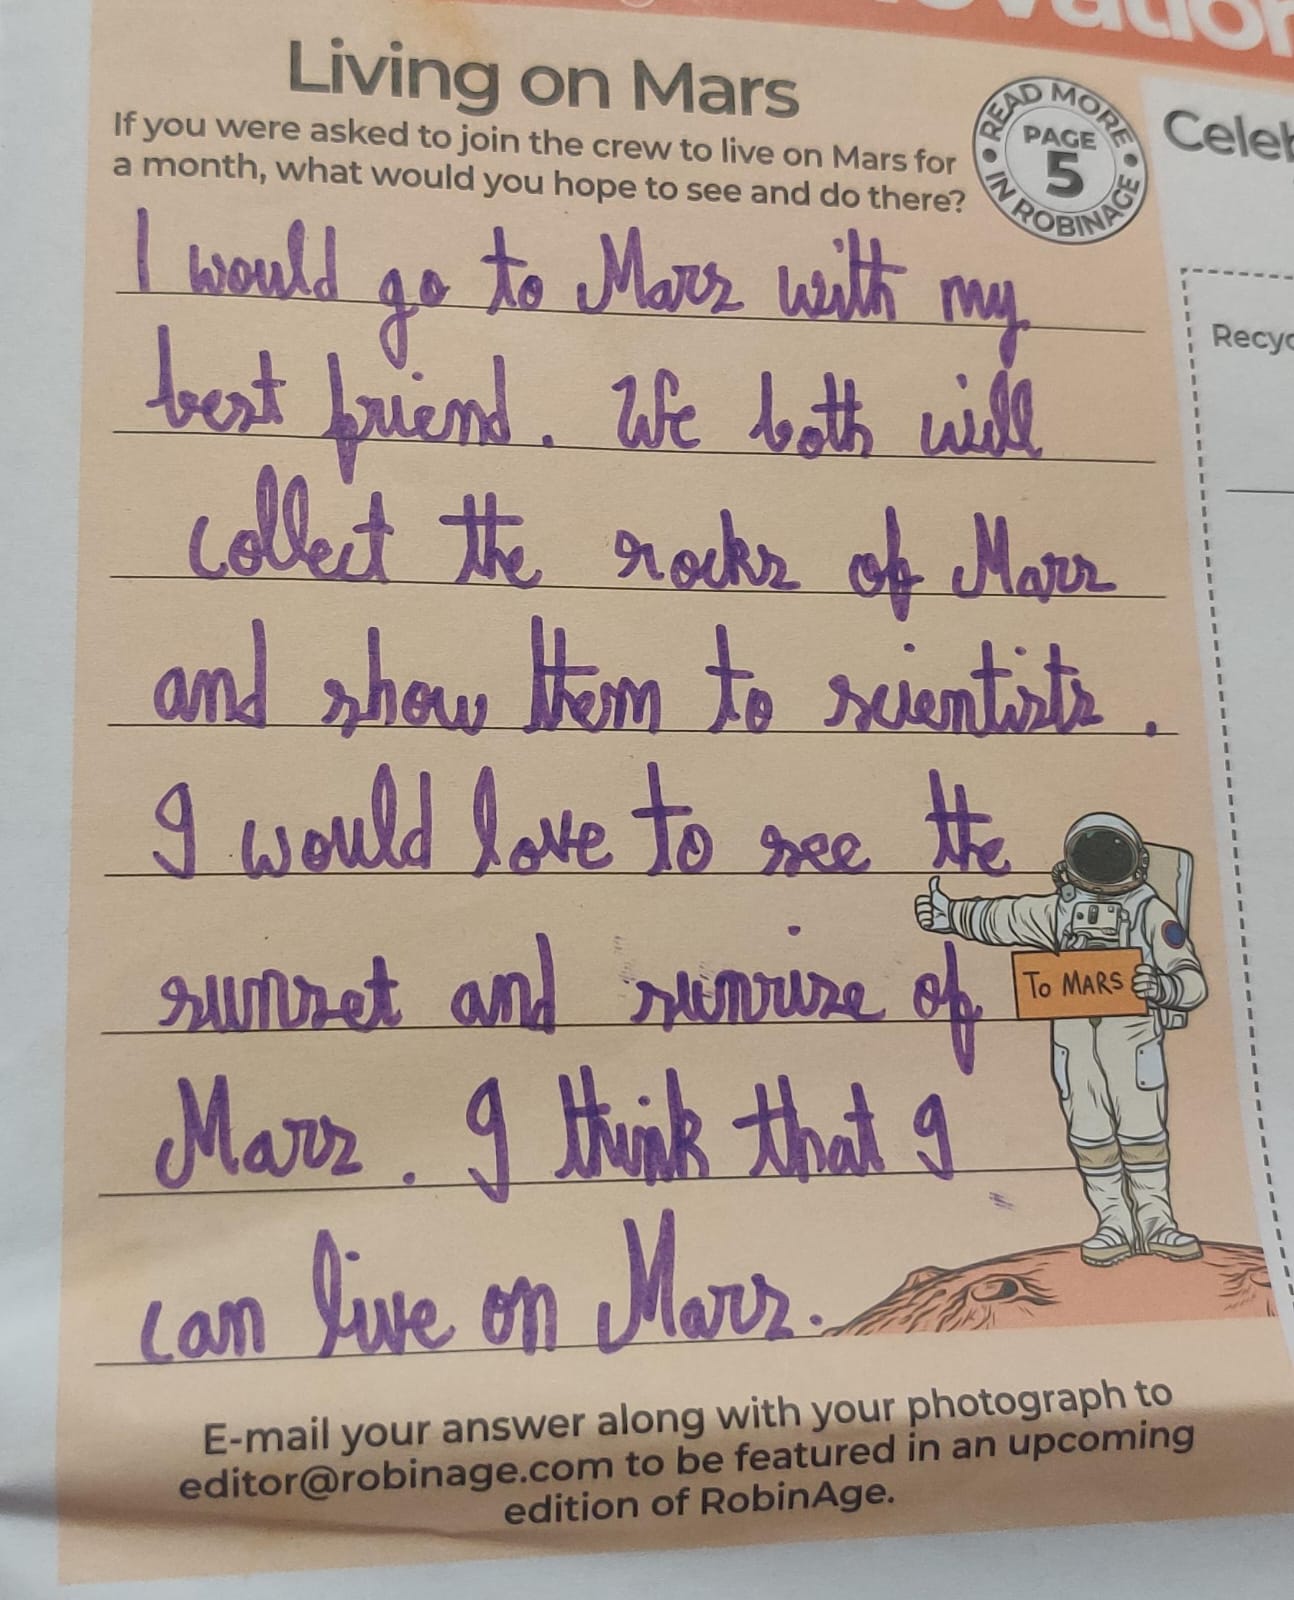 Living on Mars
If you were asked to join the crew to live on Mars for
a month, what would you hope to see and do there?
READ MORE
PAGE
5
IN ROBINAGE
I would go to Mars with my
best friend. We both will
collect the rocks of Mars
and show them to scientists.
I would love to see the
sunset and sunrise of
Mars. I think that I
can live on Mars.
To MARS
E-mail your answer along with your photograph to
editor@robinage.com to be featured in an upcoming
edition of RobinAge.